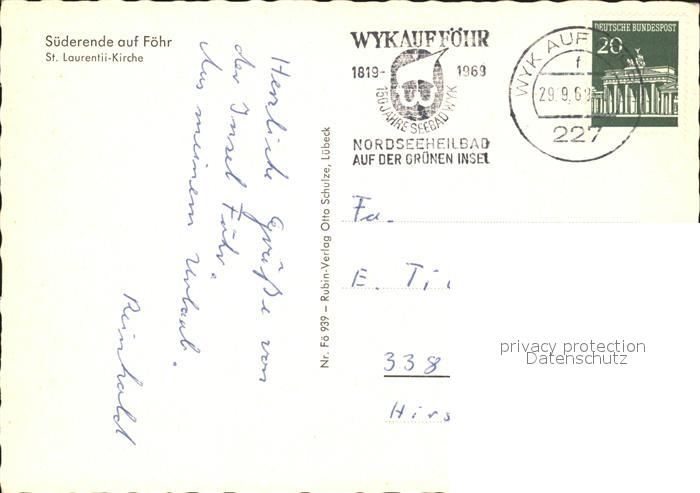 Süderende auf Föhr
St. Laurentii-Kirche
Herzliche Grüße von
der Insel Föhr.
Aus meinem Urlaub.
Reinhold
Nr. Fö 939 – Rubin-Verlag Otto Schulze, Lübeck
WYK AUF FÖHR
1819- 1969
150 JAHRE SEEBAD WYK
NORDSEEHEILBAD
AUF DER GRÜNEN INSEL
WYK AUF
f
29.9.69
227
DEUTSCHE BUNDESPOST
20
Fa.
E. Ti
338
Hirs
privacy protection
Datenschutz